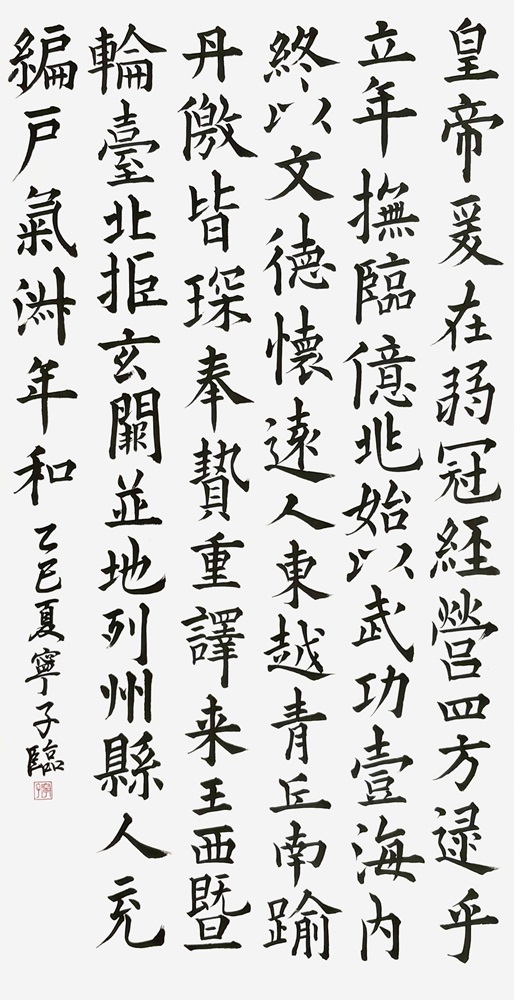 皇帝爰在弱冠經營四方逯乎
立年撫臨億兆始以武功壹海内
終以文德懷遠人東越青丘南踰
丹徼皆琛奉贄重譯来王西暨
輪臺北拒玄闕並地列州縣人充
編戶氣淑年和
乙巳夏寧子臨